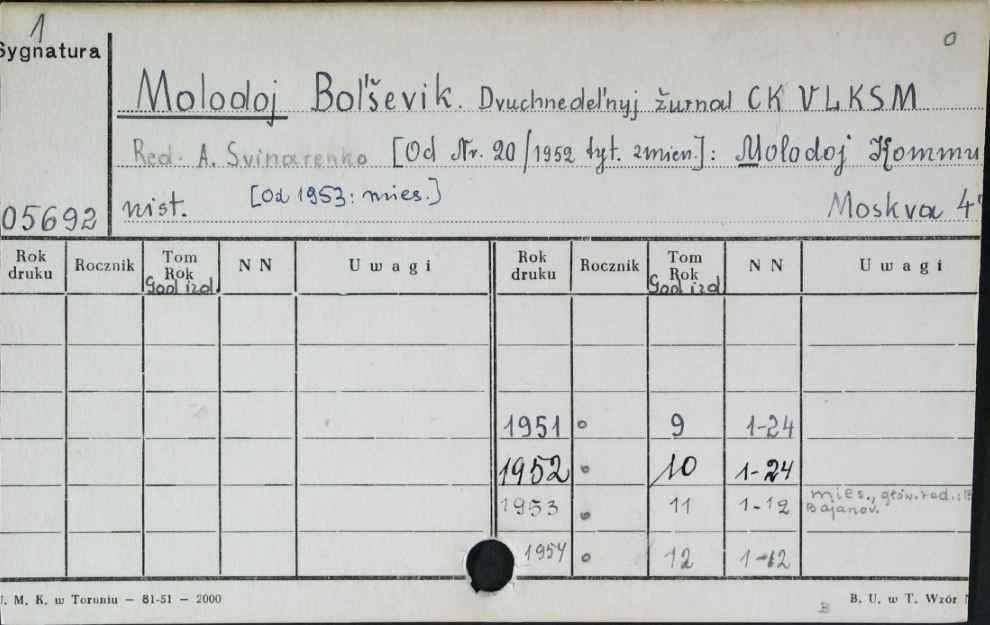 1
Sygnatura
o
Molodoj Bol'ševik. Dvuchnedel'nyj žurnal CK VLKSM
Red. A. Svinarenko [Od Nr. 20/1952 tyt. zmien.]: Molodoj Kommu
nist. [Od 1953: mies.]
05692
Moskva 4°
Rok druku Rocznik Tom Rok God izd. N N Uwagi Rok druku Rocznik Tom Rok God izd. N N Uwagi
1951 o 9 1-24
1952 10 1-24
1953 11 1-12 mies., głów. red.:
Bajanov.
1954 o 12 1-12
U. M. K. w Toruniu — 81-51 — 2000
B
B. U. w T. Wzór